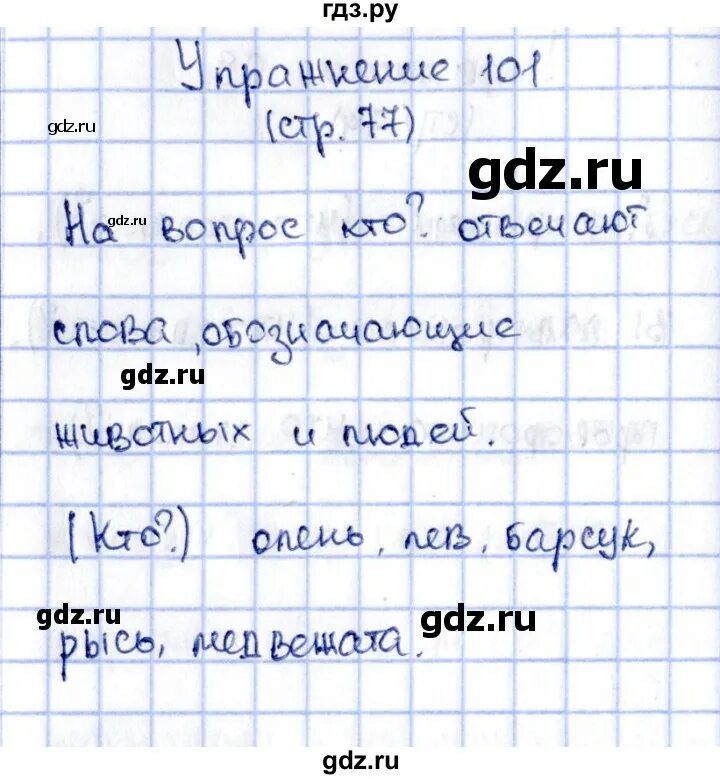 гдз.ру
Упражнение 101
gdz.ru
(стр. 77)
gdz.ru
gdz.ru
На вопрос кто? отвечают
слова, обозначающие
gdz.ru
животных и людей.
(Кто?) олень, лев, барсук,
gdz.ru
gdz.ru
рысь, медвежата.
gdz.ru